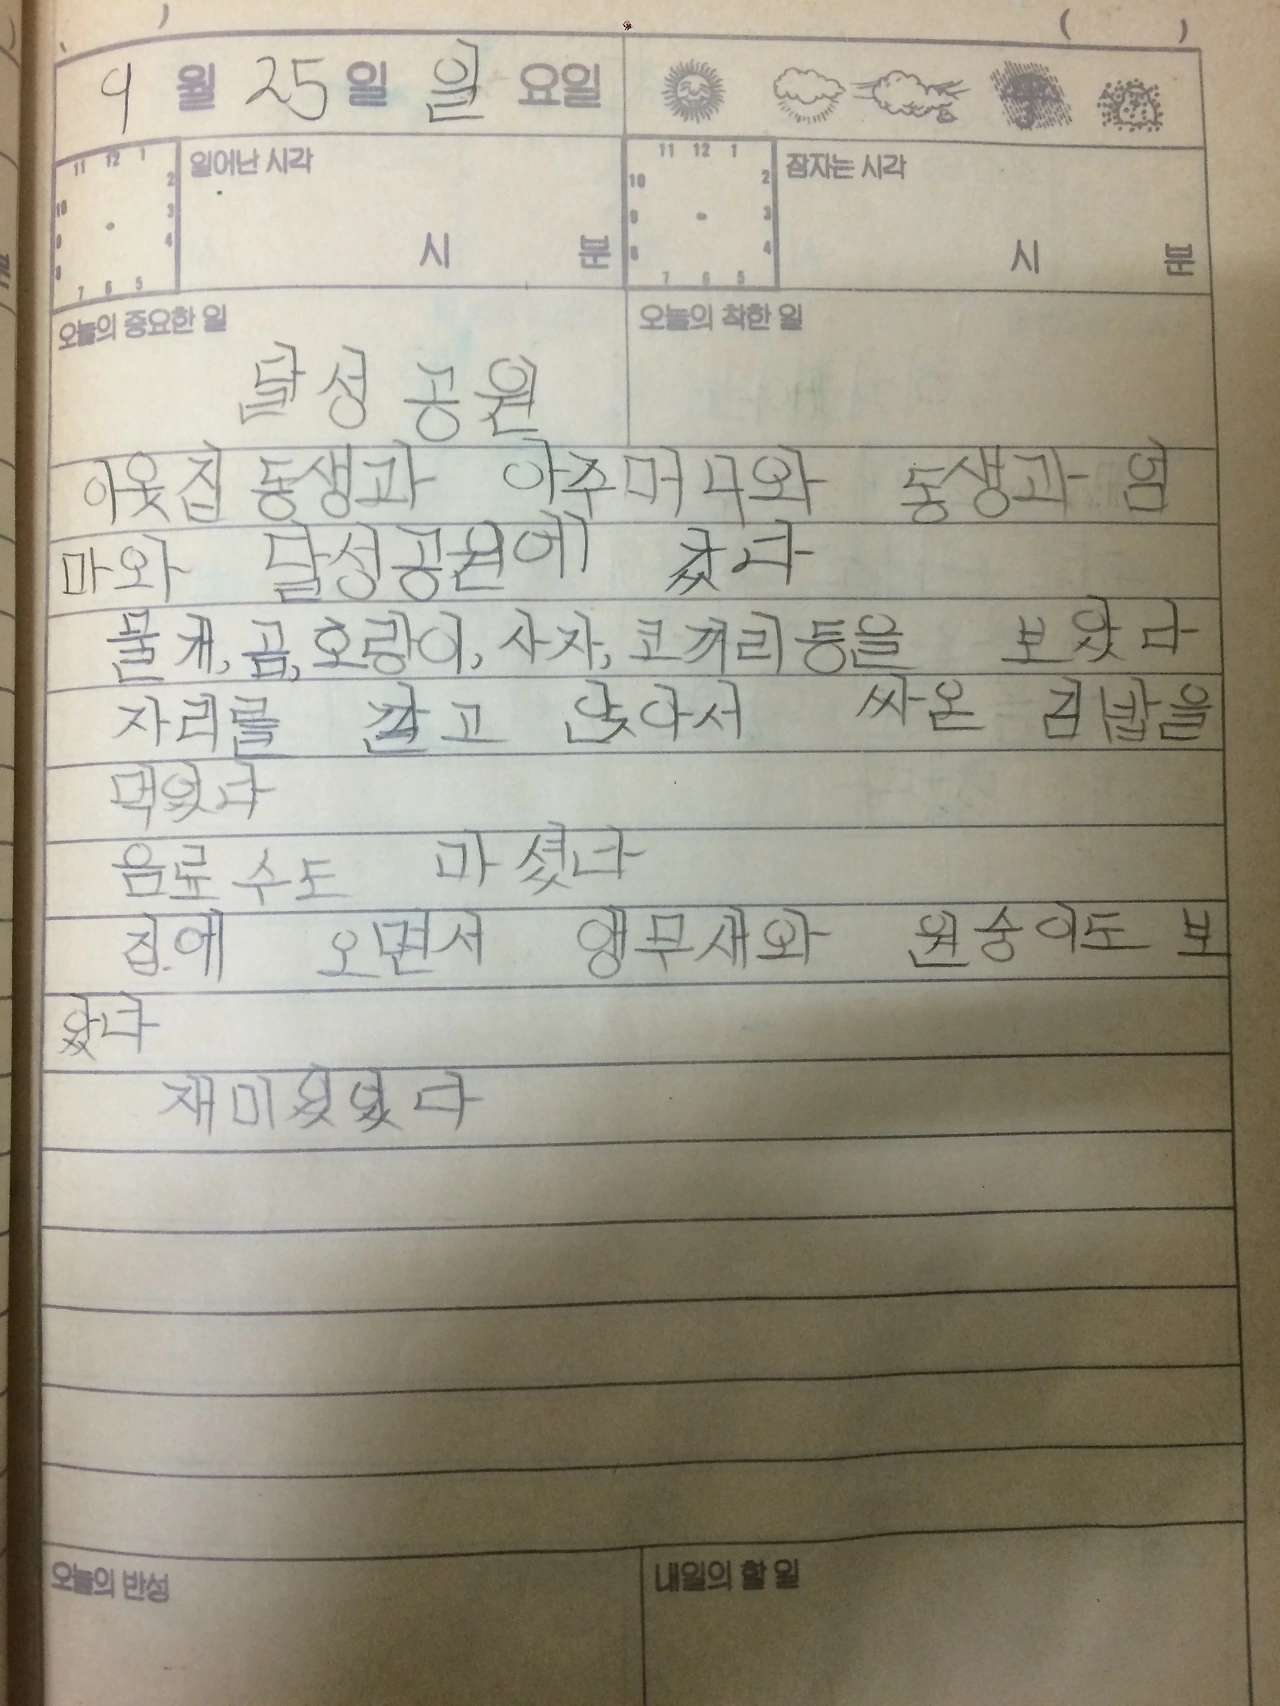 9 월 25 일 일 요일
일어난 시각
11 12 1 2 3 4 5 6 7 8 9 10
시 분
잠자는 시각
11 12 1 2 3 4 5 6 7 8 9 10
시 분
오늘의 중요한 일
오늘의 착한 일
달성 공원
이웃집 동생과 아주머니와 동생과 엄
마와 달성공원에 갔다
물개, 곰, 호랑이, 사자, 코끼리 등을 보았다
자리를 깔고 앉아서 싸온 김밥을
먹었다
음료수도 마셨다
집에 오면서 앵무새와 원숭이도 보
았다
재미있었다
오늘의 반성
내일의 할 일